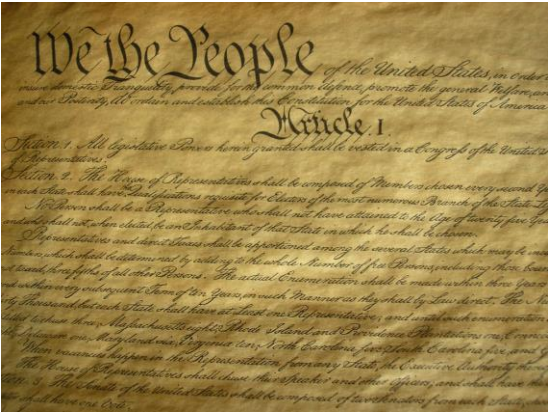 We the People of the United States, in Order
insure domestic Tranquility, provide for the common defence, promote the general Welfare, and
and our Posterity, do ordain and establish this Constitution for the United States of America
Article. I.
Section. 1. All legislative Powers herein granted shall be vested in a Congress of the United
of Representatives.
Section. 2. The House of Representatives shall be composed of Members chosen every second
in each State shall have Qualifications requisite for Electors of the most numerous Branch of the State
No Person shall be a Representative who shall not have attained to the Age of twenty five
and who shall not, when elected, be an Inhabitant of that State in which he shall be chosen.
Representatives and direct Taxes shall be apportioned among the several States which may be
Numbers, which shall be determined by adding to the whole Number of free Persons, including those
three fifths of all other Persons. The actual Enumeration shall be made within three Years
and within every subsequent Term of ten Years, in such Manner as they shall by Law direct. The
thirty Thousand, but each State shall have at Least one Representative; and until such enumeration
three, Massachusetts eight, Rhode Island and Providence Plantations one,
Delaware one, Maryland six, Virginia ten, North Carolina five, South Carolina five, and
When vacancies happen in the Representation from any State, the Executive Authority
The House of Representatives shall chuse their Speaker and other Officers; and shall have
3. The Senate of the United States shall be composed of two Senators from each State,
shall have one Vote.